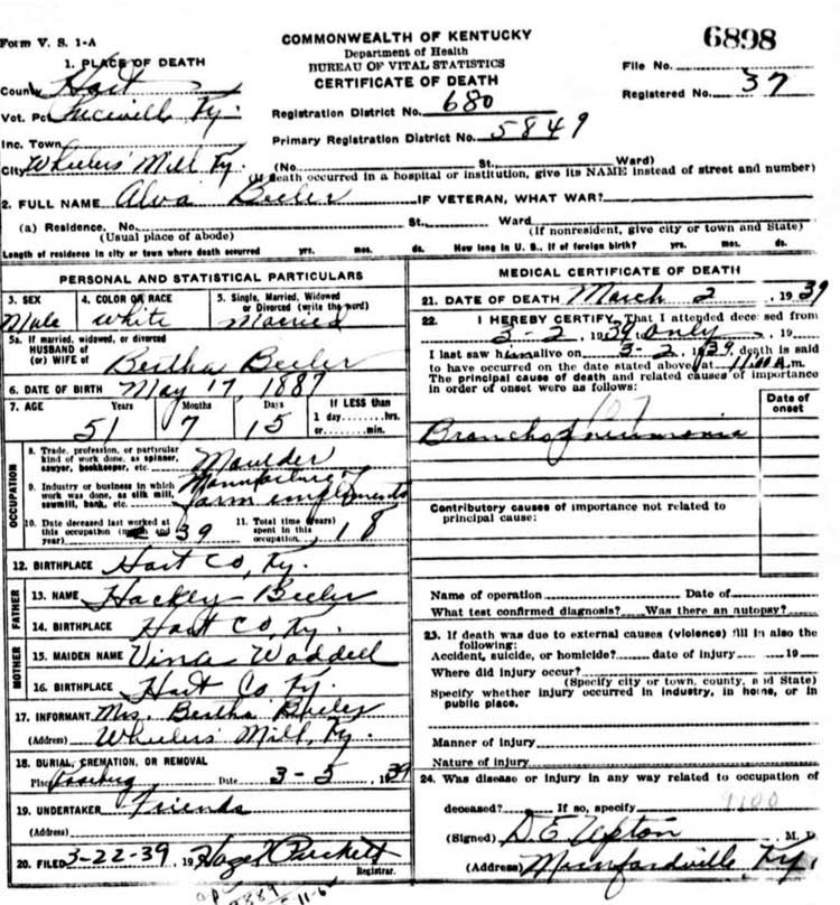 Form V. S. 1-A
COMMONWEALTH OF KENTUCKY
Department of Health
BUREAU OF VITAL STATISTICS
CERTIFICATE OF DEATH
6898
File No.
Registered No. 37
1. PLACE OF DEATH
County Hart
Vot. Pct. Ky.
Inc. Town
City Wheelers Mill Ky.
Registration District No. 680
Primary Registration District No. 5849
(No. St. Ward)
(If death occurred in a hospital or institution, give its NAME instead of street and number)
2. FULL NAME Alva Beeler IF VETERAN, WHAT WAR?
(a) Residence. No. St. Ward
(Usual place of abode) (If nonresident, give city or town and State)
Length of residence in city or town where death occurred yrs. mos. ds. How long in U. S., if of foreign birth? yrs. mos. ds.
PERSONAL AND STATISTICAL PARTICULARS
3. SEX 4. COLOR OR RACE 5. Single, Married, Widowed
or Divorced (write the word)
Male White Married
5a. If married, widowed, or divorced
HUSBAND of
(or) WIFE of Bertha Beeler
6. DATE OF BIRTH May 17, 1887
7. AGE Years Months Days If LESS than
1 day hrs.
or min.
51 7 15
OCCUPATION
8. Trade, profession, or particular
kind of work done, as spinner,
sawyer, bookkeeper, etc. Moulder
9. Industry or business in which
work was done, as silk mill,
sawmill, bank, etc. farm emplements
10. Date deceased last worked at
this occupation (month and
year) 39
11. Total time (years)
spent in this
occupation 18
12. BIRTHPLACE Hart Co, Ky.
FATHER
13. NAME Hackley Beeler
14. BIRTHPLACE Hart Co, Ky.
MOTHER
15. MAIDEN NAME Vina Waddell
16. BIRTHPLACE Hart Co Ky.
17. INFORMANT Mrs. Bertha Beeler
(Address) Wheelers Mill, Ky.
18. BURIAL, CREMATION, OR REMOVAL
Place Date 3-3, 1939
19. UNDERTAKER Friends
(Address)
20. FILED 3-22-39, 19 Hazel Puckett
Registrar.
MEDICAL CERTIFICATE OF DEATH
21. DATE OF DEATH March 2, 1939
22. I HEREBY CERTIFY, That I attended deceased from
3-2, 1939 to only, 19
I last saw him alive on 3-2, 1939, death is said
to have occurred on the date stated above, at 11:00 A.m.
The principal cause of death and related causes of importance
in order of onset were as follows:
Date of
onset
107
Broncho pneumonia
Contributory causes of importance not related to
principal cause:
Name of operation Date of
What test confirmed diagnosis? Was there an autopsy?
23. If death was due to external causes (violence) fill in also the
following:
Accident, suicide, or homicide? date of injury 19
Where did injury occur?
(Specify city or town, county, and State)
Specify whether injury occurred in industry, in home, or in
public place.
Manner of injury
Nature of injury
24. Was disease or injury in any way related to occupation of
deceased? If so, specify
(Signed) D E Upton M. D.
(Address) Munfordville, Ky.